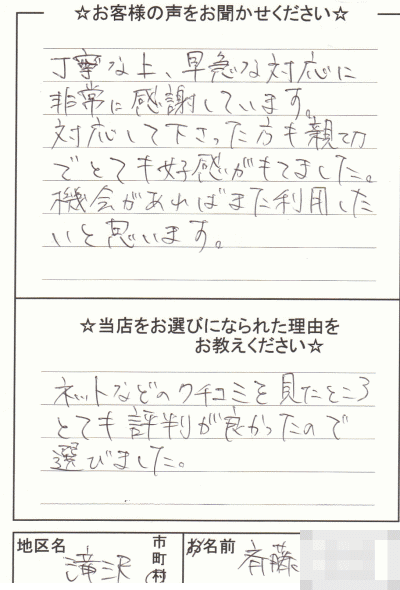 ☆お客様の声をお聞かせください☆
丁寧な上、早急な対応に
非常に感謝しています。
対応して下さった方も親切
でとても好感がもてました。
機会があればまた利用した
いと思います。
☆当店をお選びになられた理由を
お教えください☆
ネットなどのクチコミを見たところ
とても評判が良かったので
選びました。
地区名 滝沢 市町村 お名前 斉藤